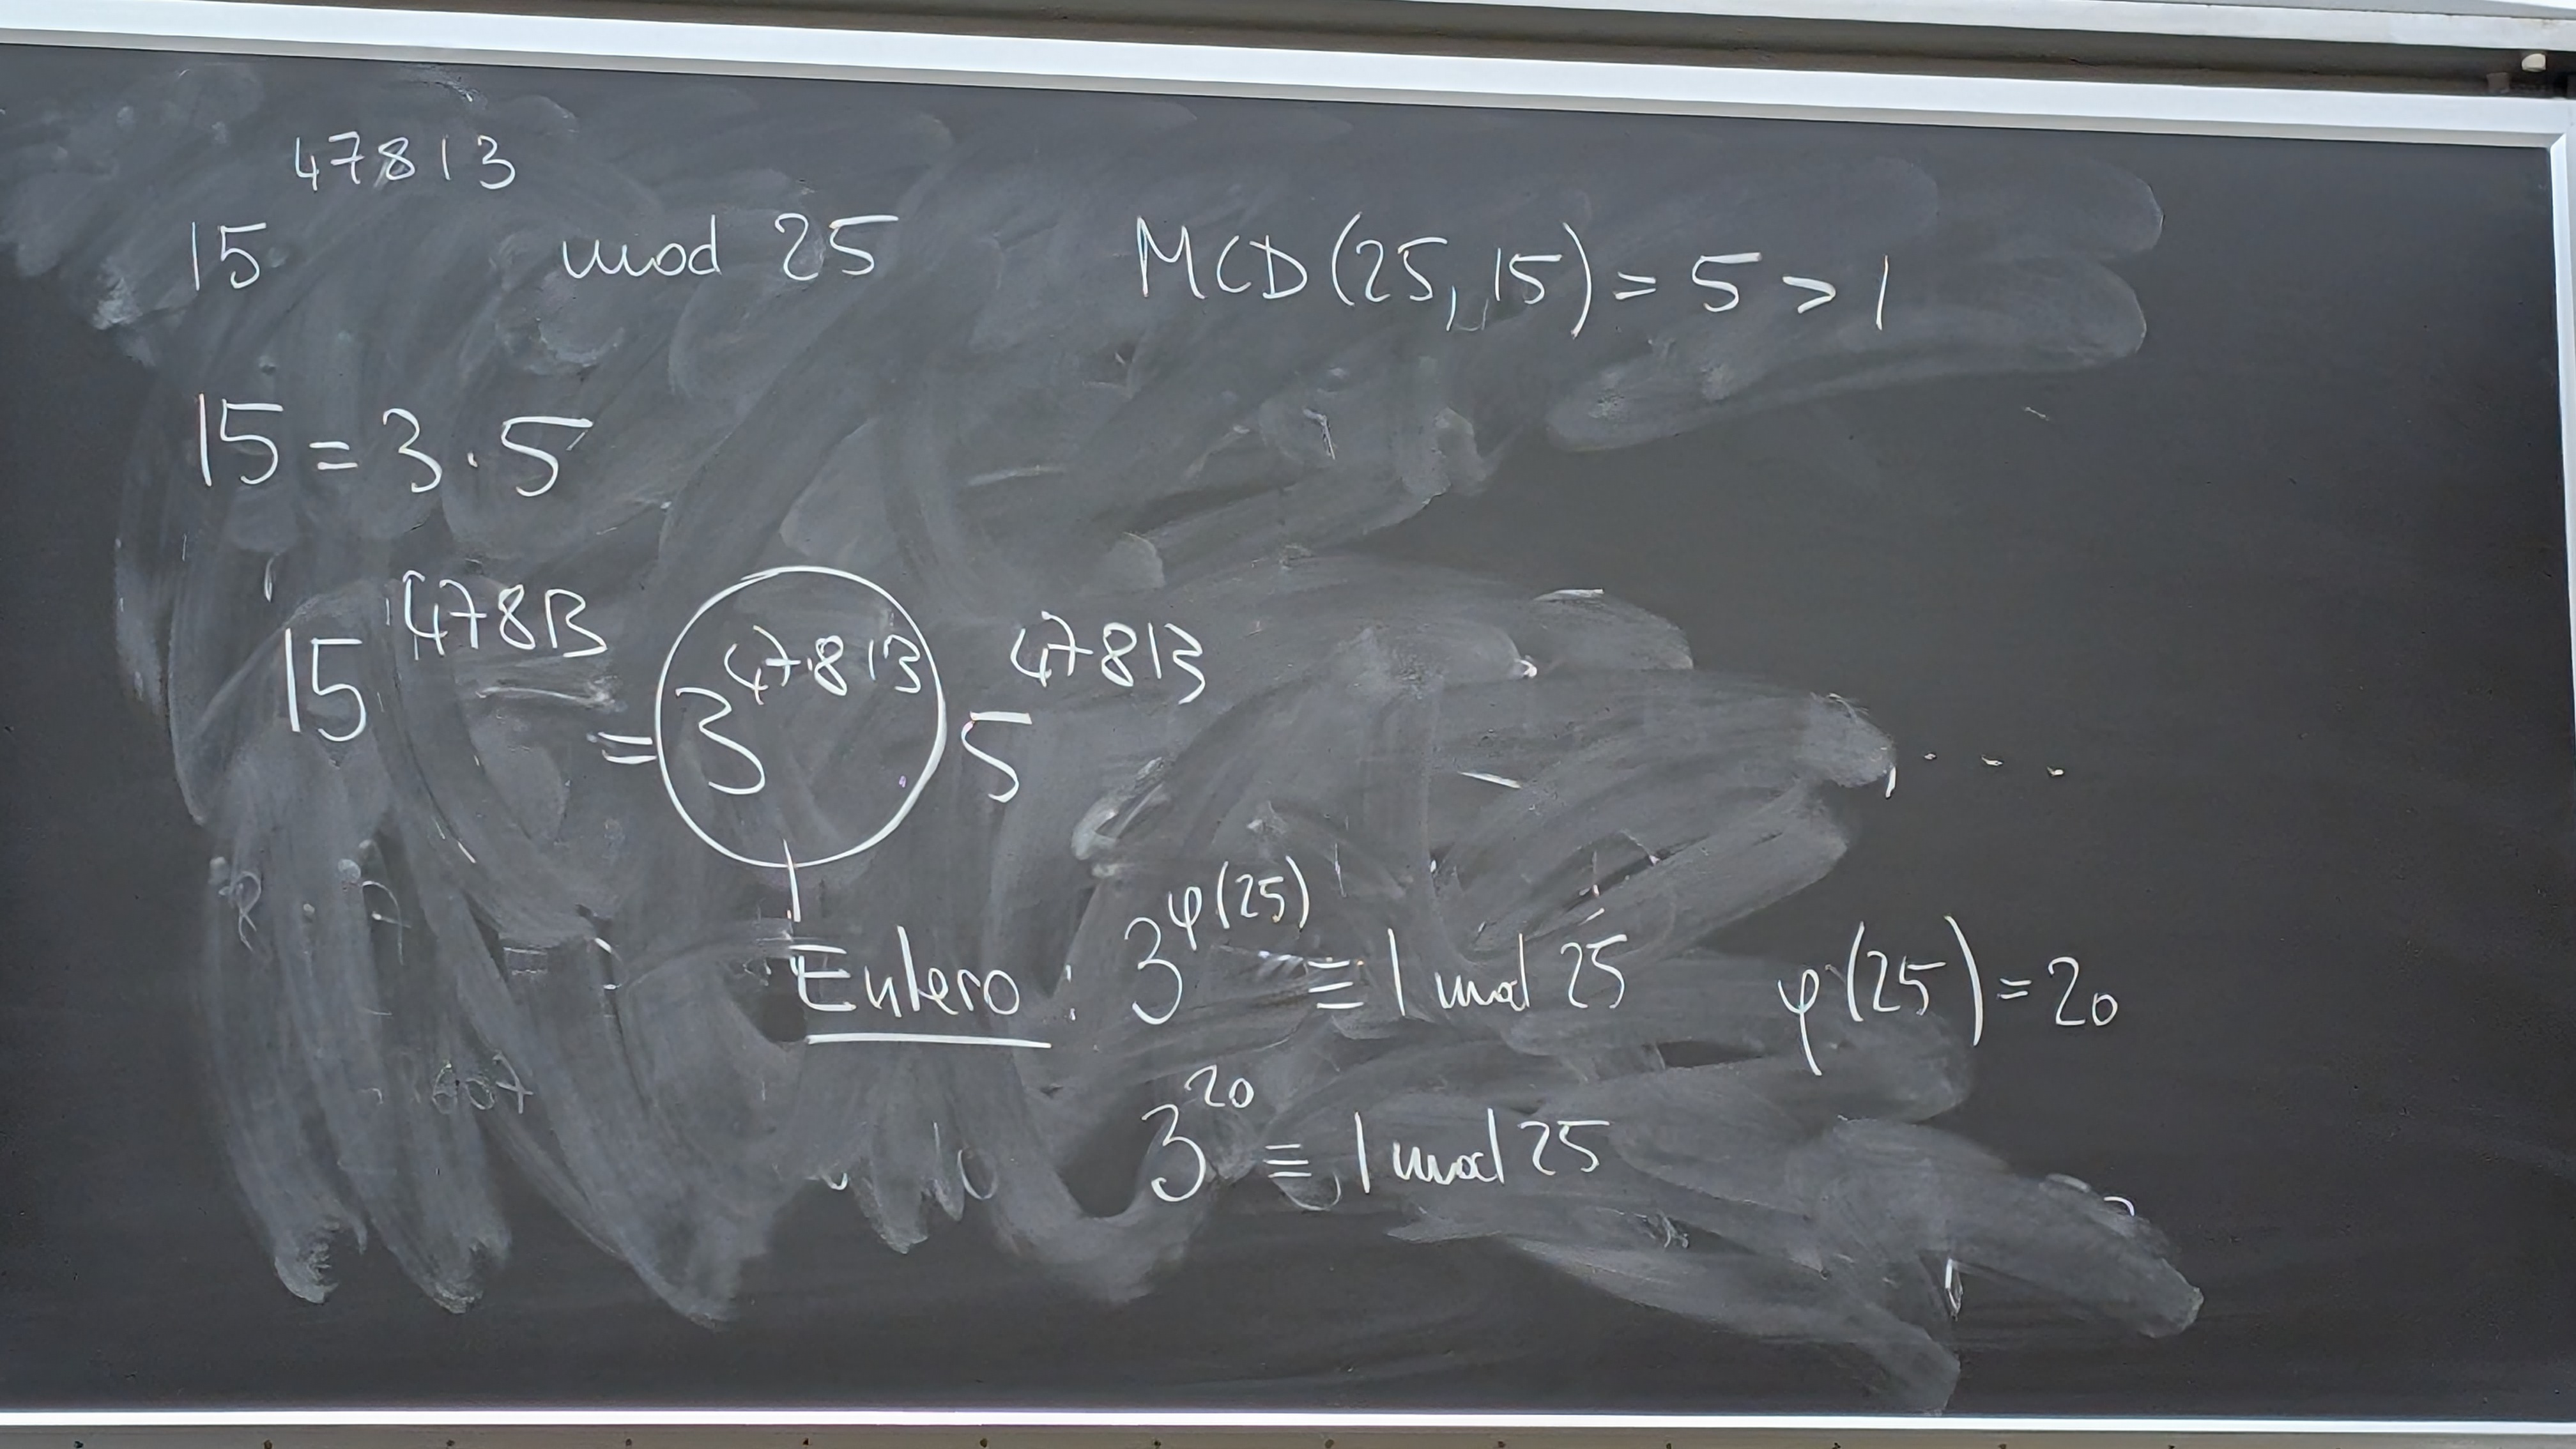 15^47813 mod 25 MCD(25,15) = 5 > 1
15 = 3·5
15^47813 = 3^47813 5^47813
Eulero : 3^φ(25) ≡ 1 mod 25 φ(25) = 20
3^20 ≡ 1 mod 25